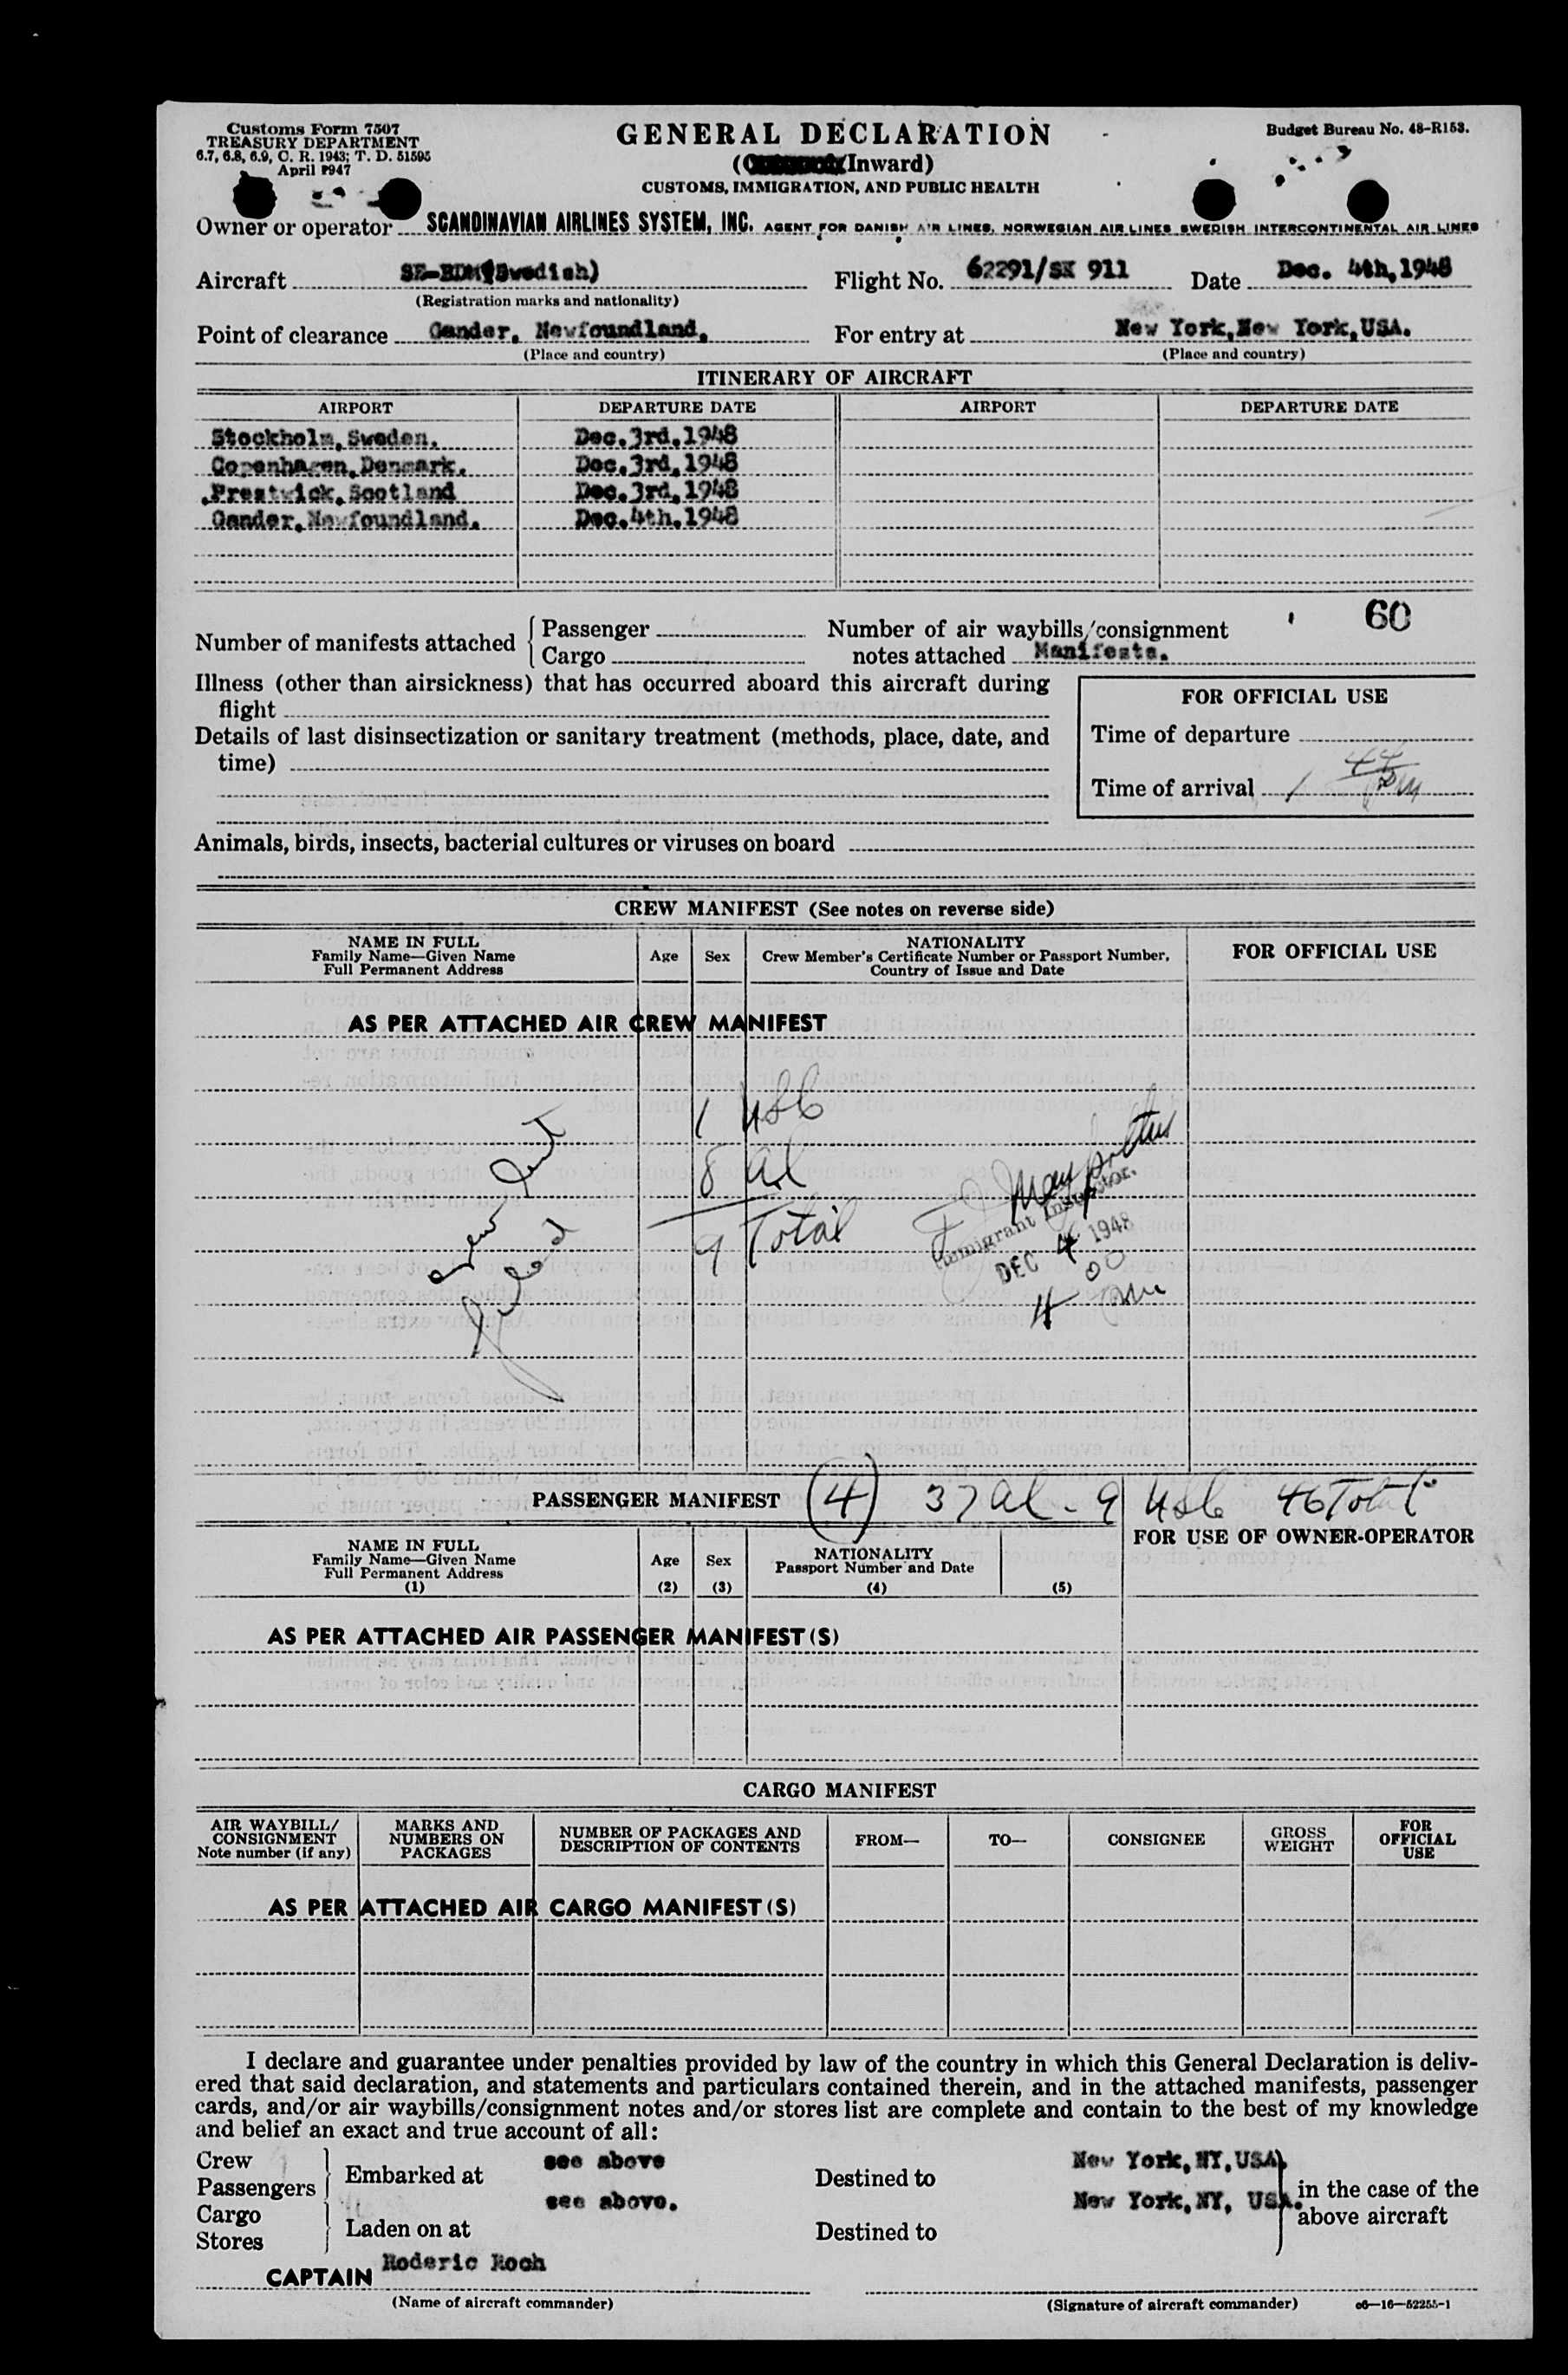 Customs Form 7507
TREASURY DEPARTMENT
6.7, 6.8, 6.9, C. R. 1943; T. D. 51595
April 1947
GENERAL DECLARATION
(Inward)
CUSTOMS, IMMIGRATION, AND PUBLIC HEALTH
Budget Bureau No. 48-R153.
Owner or operator SCANDINAVIAN AIRLINES SYSTEM, INC. AGENT FOR DANISH AIR LINES, NORWEGIAN AIR LINES SWEDISH INTERCONTINENTAL AIR LINES
Aircraft SE-BDM(Swedish) Flight No. 62291/SK 911 Date Dec. 4th,1948
(Registration marks and nationality)
Point of clearance Gander, Newfoundland. For entry at New York,New York,USA.
(Place and country) (Place and country)
ITINERARY OF AIRCRAFT
AIRPORT DEPARTURE DATE AIRPORT DEPARTURE DATE
Stockholm,Sweden. Dec.3rd,1948
Copenhagen,Denmark. Dec.3rd,1948
Prestwick,Scotland Dec.3rd,1948
Gander,Newfoundland. Dec.4th,1948
60
Number of manifests attached { Passenger Number of air waybills/consignment
Cargo notes attached Manifests.
Illness (other than airsickness) that has occurred aboard this aircraft during
flight
Details of last disinsectization or sanitary treatment (methods, place, date, and
time)
FOR OFFICIAL USE
Time of departure
Time of arrival 1 44 pm
Animals, birds, insects, bacterial cultures or viruses on board
CREW MANIFEST (See notes on reverse side)
NAME IN FULL
Family Name—Given Name
Full Permanent Address
Age Sex
NATIONALITY
Crew Member's Certificate Number or Passport Number,
Country of Issue and Date
FOR OFFICIAL USE
AS PER ATTACHED AIR CREW MANIFEST
1 USC
8 al
9 Total
Immigrant Inspector.
DEC 4 1948
4 00 pm
PASSENGER MANIFEST (4) 37 al - 9 USC 46 Total
FOR USE OF OWNER-OPERATOR
NAME IN FULL
Family Name—Given Name
Full Permanent Address
(1)
Age
(2)
Sex
(3)
NATIONALITY
Passport Number and Date
(4) (5)
AS PER ATTACHED AIR PASSENGER MANIFEST(S)
CARGO MANIFEST
AIR WAYBILL/
CONSIGNMENT
Note number (if any)
MARKS AND
NUMBERS ON
PACKAGES
NUMBER OF PACKAGES AND
DESCRIPTION OF CONTENTS
FROM— TO— CONSIGNEE
GROSS
WEIGHT
FOR
OFFICIAL
USE
AS PER ATTACHED AIR CARGO MANIFEST(S)
I declare and guarantee under penalties provided by law of the country in which this General Declaration is deliv-
ered that said declaration, and statements and particulars contained therein, and in the attached manifests, passenger
cards, and/or air waybills/consignment notes and/or stores list are complete and contain to the best of my knowledge
and belief an exact and true account of all:
Crew
Passengers
Cargo
Stores
Embarked at see above Destined to New York,NY,USA.
Laden on at see above. Destined to New York,NY, USA.
in the case of the
above aircraft
CAPTAIN Roderic Roch
(Name of aircraft commander) (Signature of aircraft commander) c6—16—52255-1